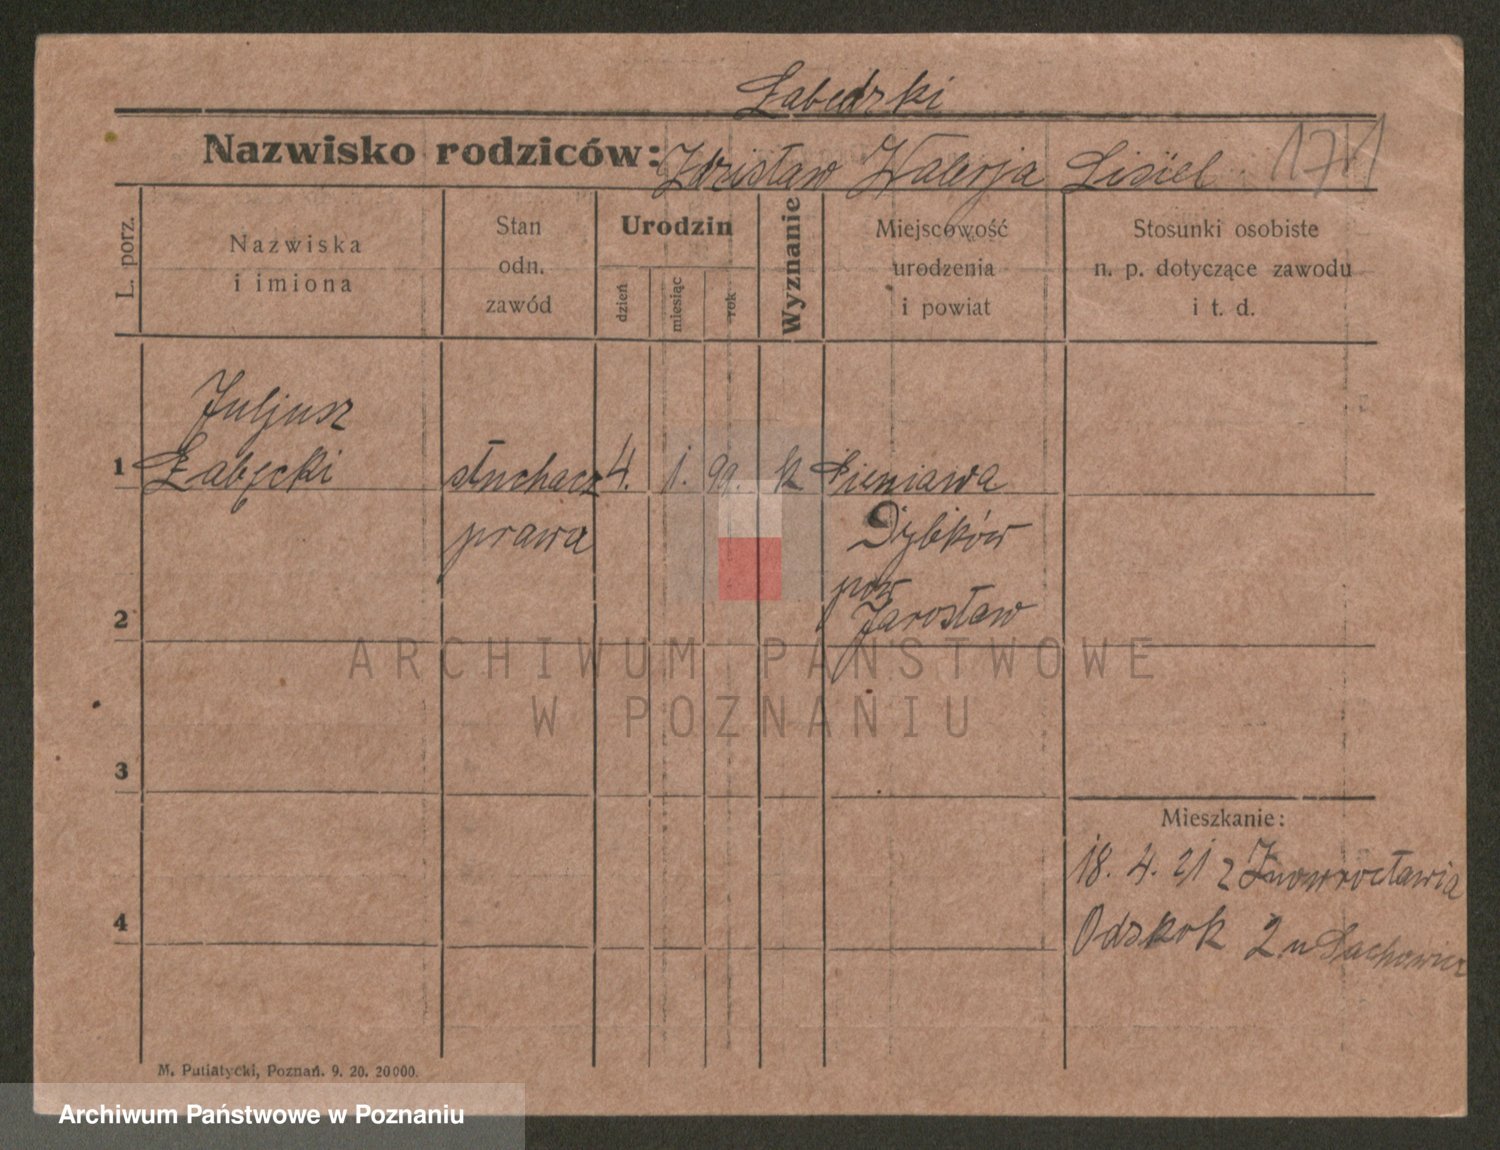 Łabędzki
Nazwisko rodziców: Zdzisław Walerja Lisiel 1711
L. porz.
Nazwiska
i imiona
Stan
odn.
zawód
Urodzin
dzień
miesiąc
rok
Wyznanie
Miejscowość
urodzenia
i powiat
Stosunki osobiste
n. p. dotyczące zawodu
i t. d.
Juljusz
1 Łabęcki słuchacz 4. 1. 99. k Sieniawa
prawa Dybków
pow
2 Jarosław
ARCHIWUM PAŃSTWOWE
W POZNANIU
3
Mieszkanie:
18. 4. 21 z Inowrocławia
4 Odskok 2 u Lachowicz
M. Putiatycki, Poznań. 9. 20. 20000.
Archiwum Państwowe w Poznaniu